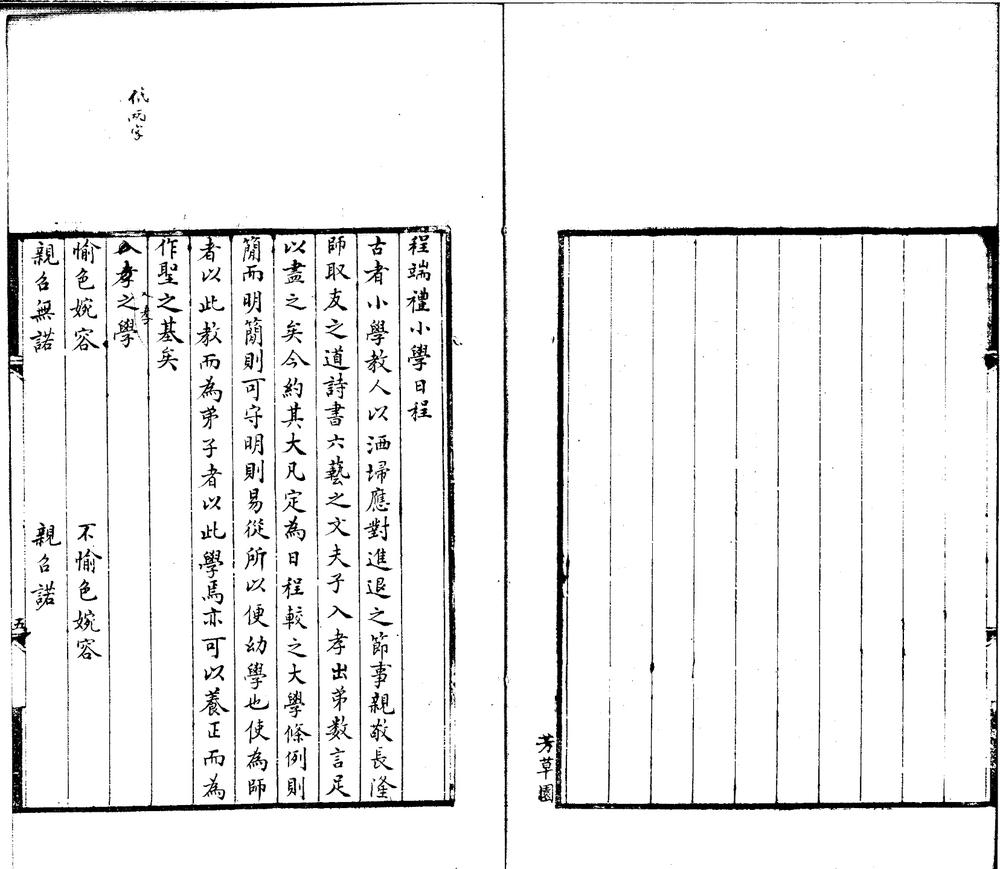 芳草園
程端禮小學日程
古者小學教人以洒埽應對進退之節事親敬長隆
師取友之道詩書六藝之文夫子入孝出弟數言足
以盡之矣今約其大凡定為日程較之大學條例則
簡而明簡則可守明則易從所以便幼學也使為師
者以此教而為弟子者以此學焉亦可以養正而為
作聖之基矣
入孝
入孝之學
低兩字
愉色婉容 不愉色婉容
親召無諾 親召諾
五